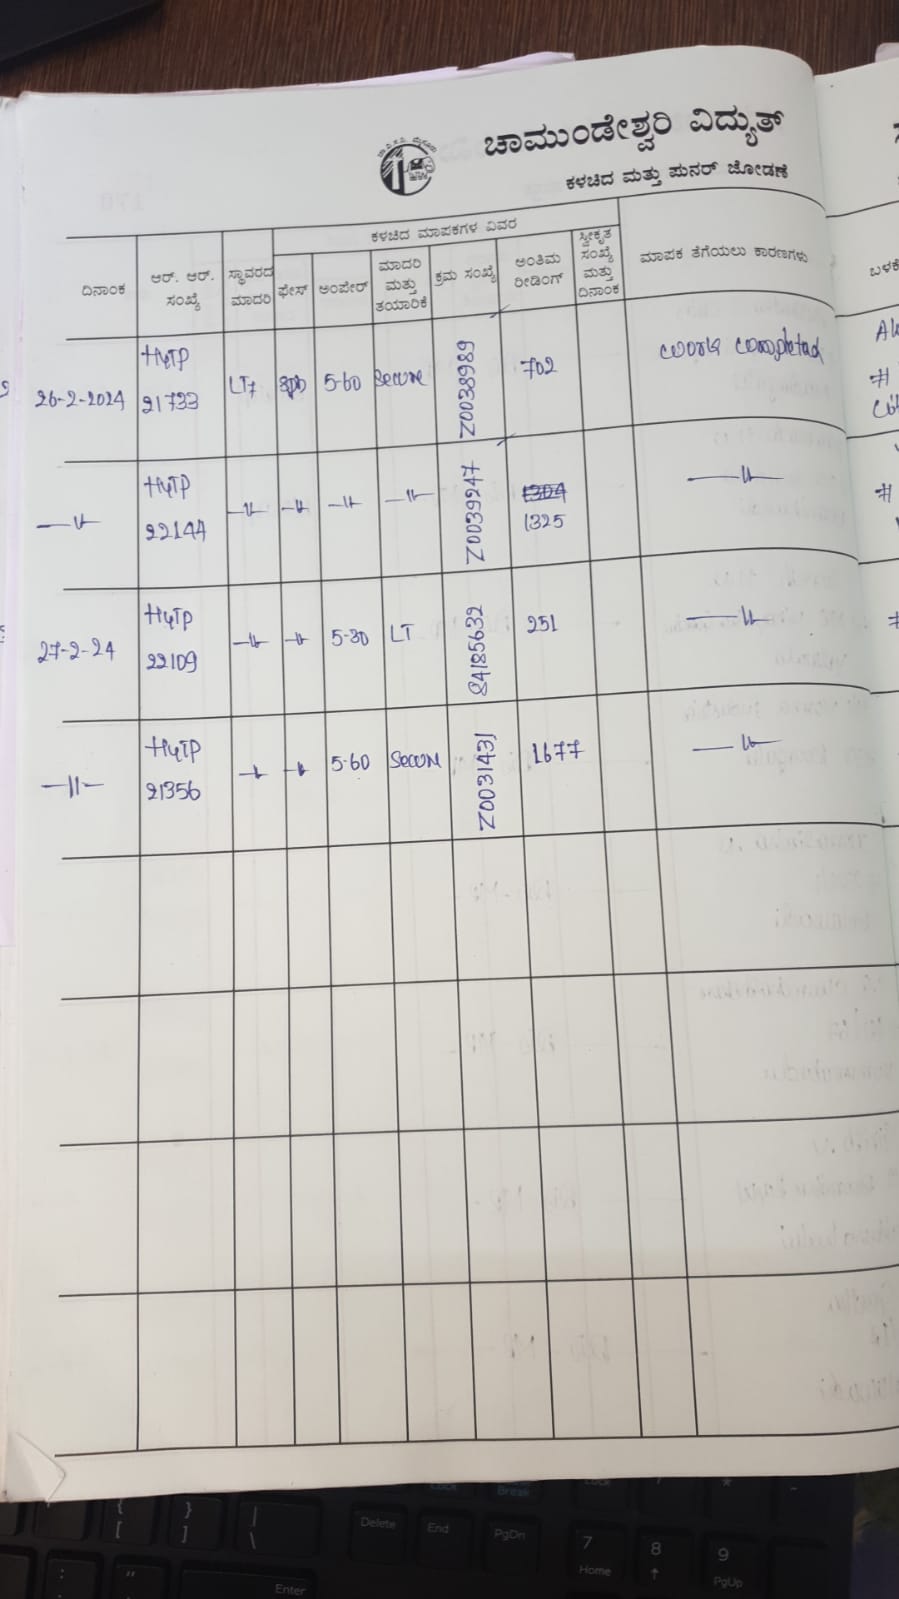 ಚಾಮುಂಡೇಶ್ವರಿ ವಿದ್ಯುತ್
ಕಳಚಿದ ಮತ್ತು ಪುನರ್ ಜೋಡಣೆ
ಕಳಚಿದ ಮಾಪಕಗಳ ವಿವರ
ದಿನಾಂಕ ಆರ್. ಆರ್. ಸಂಖ್ಯೆ ಸ್ಥಾವರದ ಮಾದರಿ ಫೇಸ್ ಅಂಪೇರ್ ಮಾದರಿ ಮತ್ತು ತಯಾರಿಕೆ ಕ್ರಮ ಸಂಖ್ಯೆ ಅಂತಿಮ ರೀಡಿಂಗ್ ಸ್ವೀಕೃತ ಸಂಖ್ಯೆ ಮತ್ತು ದಿನಾಂಕ ಮಾಪಕ ತೆಗೆಯಲು ಕಾರಣಗಳು
26-2-2024 HyTP 21733 LT7 5-60 Secure Z0038989 702 work completed
—〃— HyTP 22144 —〃— —〃— —〃— —〃— Z0039247 1304 1325 —〃—
27-2-24 HyTP 22109 —〃— —〃— 5-30 LT 84185632 251 —〃—
—〃— HyTP 21356 —〃— —〃— 5-60 Secure Z0031431 1677 —〃—
Delete End PgDn 7 Home 8 9 PgUp
Enter
Break